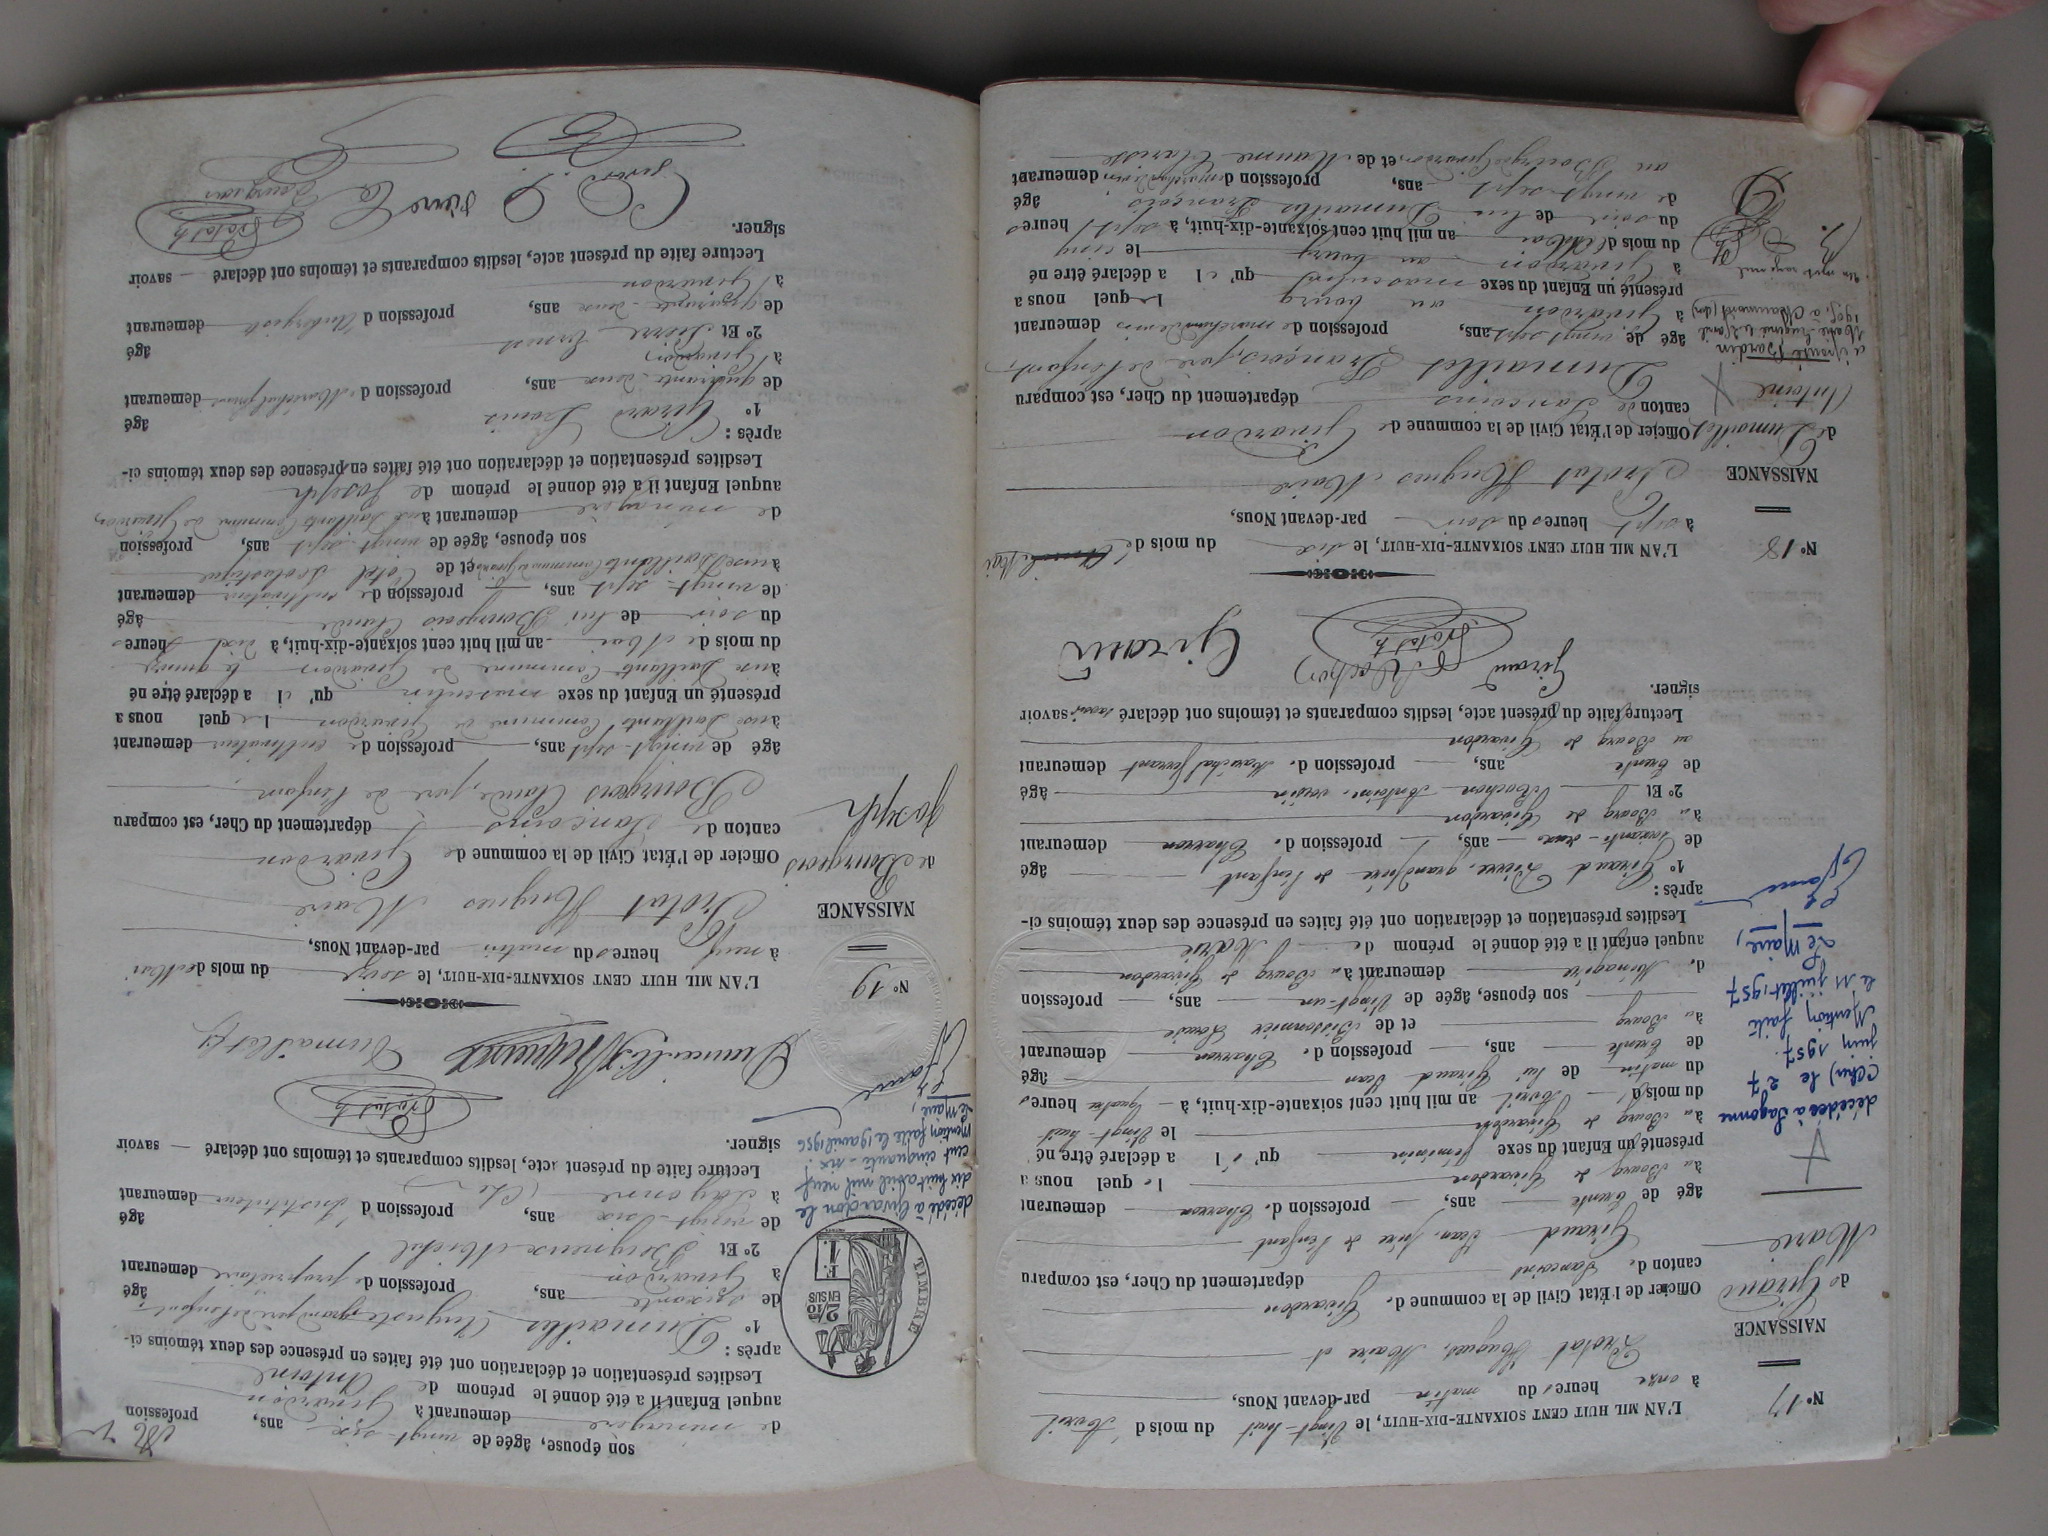 N° 17
NAISSANCE
de Giraud
Marie
décédée à Sagonne
(Cher) le 27
juin 1957.
Mention faite
le 11 juillet 1957
Le Maire,
L'AN MIL HUIT CENT SOIXANTE-DIX-HUIT, le Vingt-huit du mois d'Avril
à onze heures du matin par-devant Nous,
Protat Hugues, Maire et
Officier de l'État Civil de la commune de Givardon
canton de Sancoins département du Cher, est comparu
Giraud Jean, père de l'enfant
âgé de trente ans, profession de Charron demeurant
au Bourg de Givardon lequel nous a
présenté un Enfant du sexe féminin qu'il a déclaré être né
au Bourg de Givardon le Vingt-huit
du mois d'Avril an mil huit cent soixante-dix-huit, à quatre heures
du matin de lui Giraud Jean âgé
de trente ans, profession de Charron demeurant
au Bourg et de Louise
son épouse, âgée de Vingt-un ans, profession
de Ménagère demeurant à au Bourg de Givardon
auquel enfant il a été donné le prénom de Marie
Lesdites présentation et déclaration ont été faites en présence des deux témoins ci-
après :
1° Giraud Pierre, grand-père de l'enfant âgé
de soixante-deux ans, profession de Charron demeurant
au Bourg de Givardon
2° Et Mochon Antoine, voisin âgé
de trente ans, profession de Maréchal ferrant demeurant
au Bourg de Givardon
Lecture faite du présent acte, lesdits comparants et témoins ont déclaré savoir
signer.
Giraud Mochon Giraud
Protat h
N° 18
NAISSANCE
de Dumaillet
Antoine
L'AN MIL HUIT CENT SOIXANTE-DIX-HUIT, le dix du mois de Mai
à sept heures du soir par-devant Nous,
Protat Hugues Maire
Officier de l'État Civil de la commune de Givardon
canton de Sancoins département du Cher, est comparu
Dumaillet François, père de l'enfant
âgé de vingt sept ans, profession de marchand de vin demeurant
à Givardon au bourg lequel nous a
présenté un Enfant du sexe masculin qu'il a déclaré être né
à Givardon au bourg le cinq
du mois de Mai an mil huit cent soixante-dix-huit, à sept heures
du soir de lui Dumaillet François âgé
de vingt-sept ans, profession de marchand de vin demeurant
au Bourg de Givardon et de Clarisse
son épouse, âgée de vingt-six ans, profession
de ménagère demeurant à Givardon
auquel Enfant il a été donné le prénom de Antoine
Lesdites présentation et déclaration ont été faites en présence des deux témoins ci-
après :
1° Dumaillet Auguste, grand père de l'enfant âgé
de soixante ans, profession de propriétaire demeurant
à Givardon
2° Et Michel âgé
de vingt-six ans, profession d'Instituteur demeurant
Lecture faite du présent acte, lesdits comparants et témoins ont déclaré savoir
signer.
Protat h
Dumaillet
TIMBRE
2/10
EN SUS
F. 1.
décédé à Givardon le
dix huit avril mil neuf
cent cinquante-six.
Mention faite le 19 avril 1956
Le Maire,
N° 19
NAISSANCE
de Bourgeois
Joseph
L'AN MIL HUIT CENT SOIXANTE-DIX-HUIT, le seize du mois de Mai
à neuf heures du matin par-devant Nous,
Protat Hugues Maire
Officier de l'État Civil de la commune de Givardon
canton de Sancoins département du Cher, est comparu
Bourgeois Claude, père de l'enfant
âgé de vingt-sept ans, profession de cultivateur demeurant
Commune de Givardon lequel nous a
présenté un Enfant du sexe masculin qu'il a déclaré être né
Commune de Givardon le quinze
du mois de Mai an mil huit cent soixante-dix-huit, à heures
du soir de lui Bourgeois Claude âgé
de vingt-sept ans, profession de cultivateur demeurant
et de Scolastique
son épouse, âgée de vingt-sept ans, profession
de ménagère demeurant à Commune de Givardon
auquel Enfant il a été donné le prénom de Joseph
Lesdites présentation et déclaration ont été faites en présence des deux témoins ci-
après :
1° Girard Louis âgé
de quarante-deux ans, profession de Maréchal demeurant
à Givardon
2° Et Ernest âgé
de quarante-deux ans, profession d'Aubergiste demeurant
à Givardon
Lecture faite du présent acte, lesdits comparants et témoins ont déclaré savoir
signer.
Protat h
Bourgeois